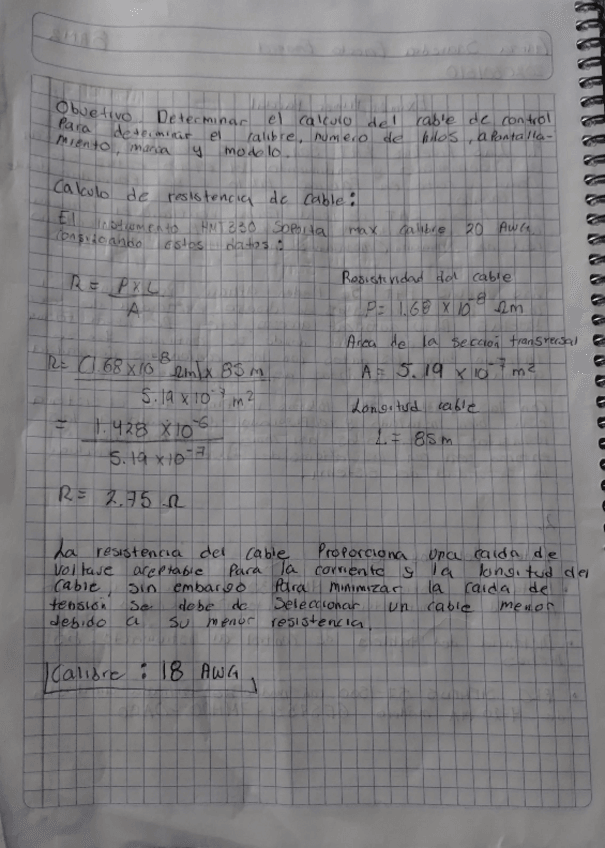 Objetivo. Determinar el calculo del cable de control
Para determinar el calibre, numero de hilos, apantalla-
miento, marca y modelo.
Calculo de resistencia de cable:
El instrumento HMT330 Soporta max calibre 20 AWG
considerando estos datos:
Resistividad del cable
R = P x L / A
P = 1.68 x 10⁻⁸ Ωm
Area de la sección transversal
R = (1.68 x 10⁻⁸ Ωm) x 85 m / 5.19 x 10⁻⁷ m²
A = 5.19 x 10⁻⁷ m²
Longitud cable
= 1.428 x 10⁻⁶ / 5.19 x 10⁻⁷
L = 85m
R = 2.75 Ω
La resistencia del cable Proporciona una caida de
voltaje aceptable Para la corriente y la longitud del
cable, sin embargo Para minimizar la caida de
tensión se debe de Seleccionar un cable menor
debido a su menor resistencia.
Calibre : 18 AWG